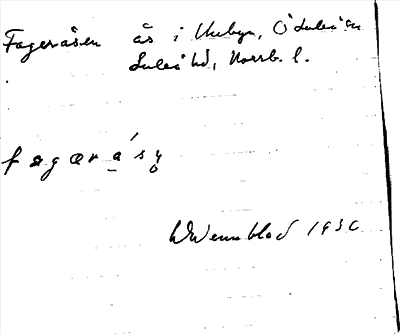 Fageråsen ås i Unbyn, Ö Luleå sn
Luleå hd, Norrb. l.
fagarásn̥
W Wennblad 1930